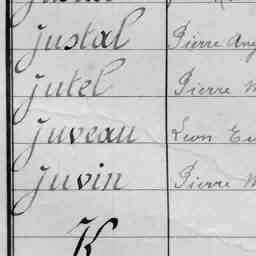 Justal Pierre Ang
Jutel Pierre M
Juveau Leon Eu
Juvin Pierre M
K